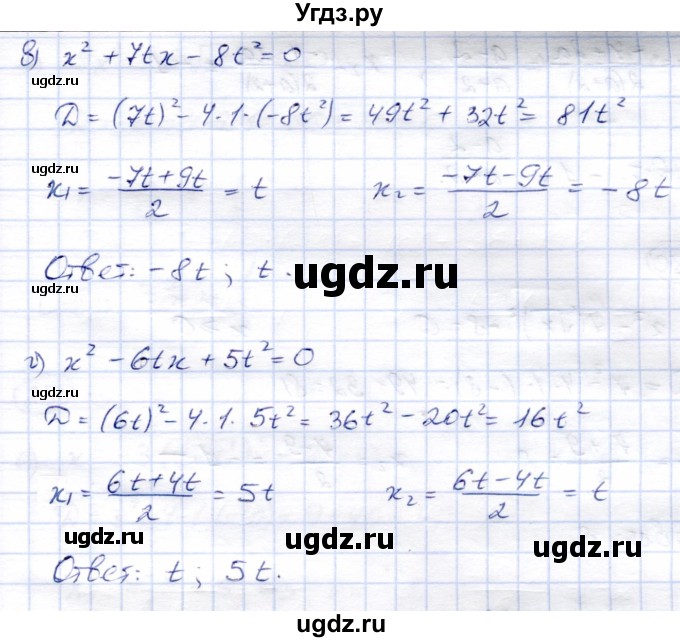 Угдз.ру
в) x² + 7tx - 8t² = 0
ugdz.ru
Д = (7t)² - 4·1·(-8t²) = 49t² + 32t² = 81t²
ugdz.ru
x₁ = (-7t+9t)/2 = t    x₂ = (-7t-9t)/2 = -8t
Ответ: -8t ; t.
ugdz.ru
ugdz.ru
г) x² - 6tx + 5t² = 0
ugdz.ru
Д = (6t)² - 4·1·5t² = 36t² - 20t² = 16t²
x₁ = (6t+4t)/2 = 5t    x₂ = (6t-4t)/2 = t
ugdz.ru ugdz.ru ugdz.ru
Ответ: t ; 5t.